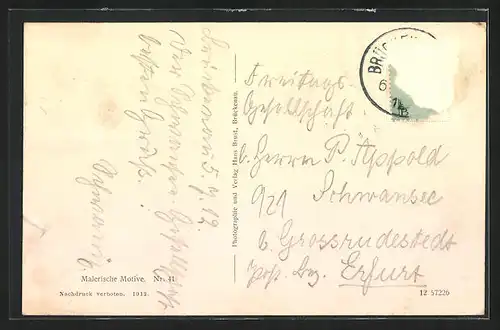 Brückenau 5.7.12
Der Schwansee-Gesellschaft
besten Gruß!
Malerische Motive. Nr. 41
Nachdruck verboten. 1912.
Photographie und Verlag Hans Brust, Brückenau.
BRÜCKEN
6
Freitags-
Gesellschaft
b. Herrn P. Appold
Schwansee
b. Grossrudestedt
Erfurt
12 57226